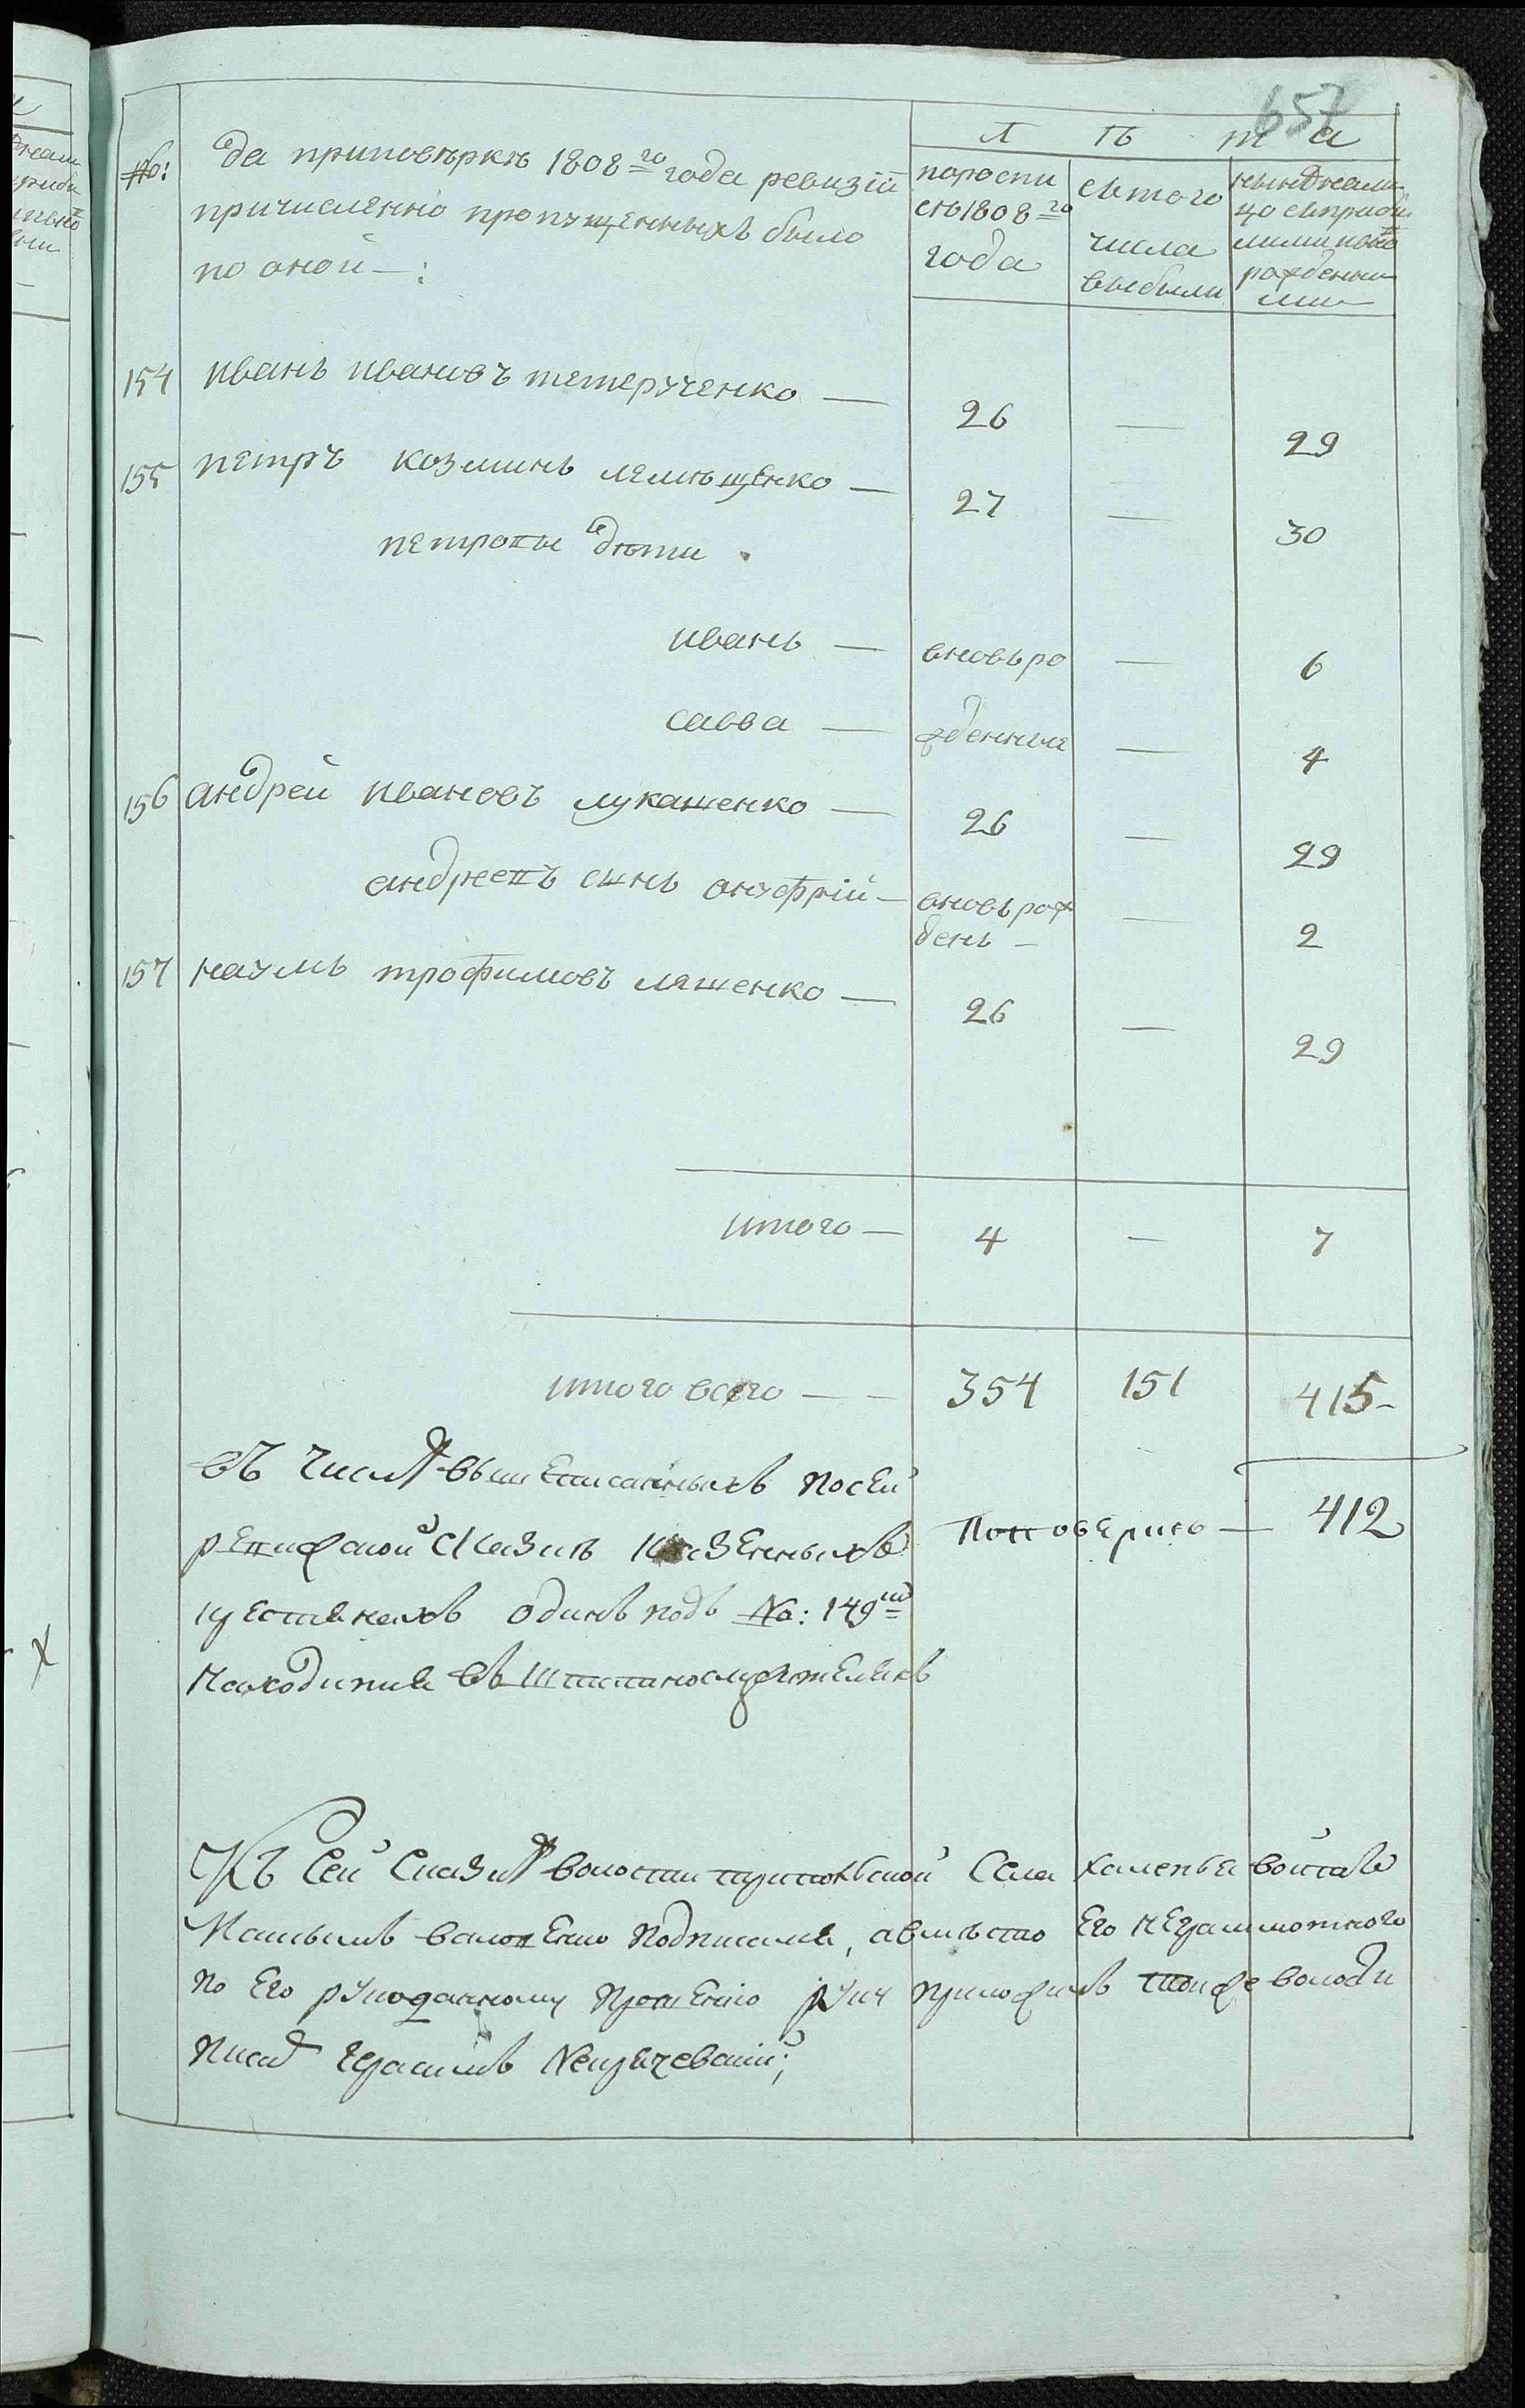 657
№:
да приповѣркѣ 1808го года ревизіи
причисленно пропущенныхъ было
по оной —:
Л ѣ т а
поревизіи
съ 1808го
года
съ того
числа
выбыли
нынѣ на ли
цо съприбы
лими и ново
рожденны
ми
154 иванъ ивановъ тетерученко — 26 — 29
155 петръ козминъ лемѣщенко — 27 — 30
петровы дѣти
иванъ — вновь ро — 6
савва — жденныя — 4
156 андрей ивановъ лукашенко — 26 — 29
андреевъ сынъ онуфрій — вновь рож
денъ — — 2
157 наумъ трофимовъ ляшенко — 26 — 29
итого — 4 — 7
итого всего — — 354 151 415 -
въ числѣ вышеписанныхъ посей
ревижской сказкѣ казенныхъ Поповѣркѣ — 412
крестьянъ одинъ подъ №: 149мъ
находится въ штатнослужителяхъ
Къ сей сказкѣ волости трипольской села халепья войтъ
валовенко подписался, авмѣсто его неграмотного
по его рукоданному прошенію руку приложилъ тоиже волости
писарь герасимъ